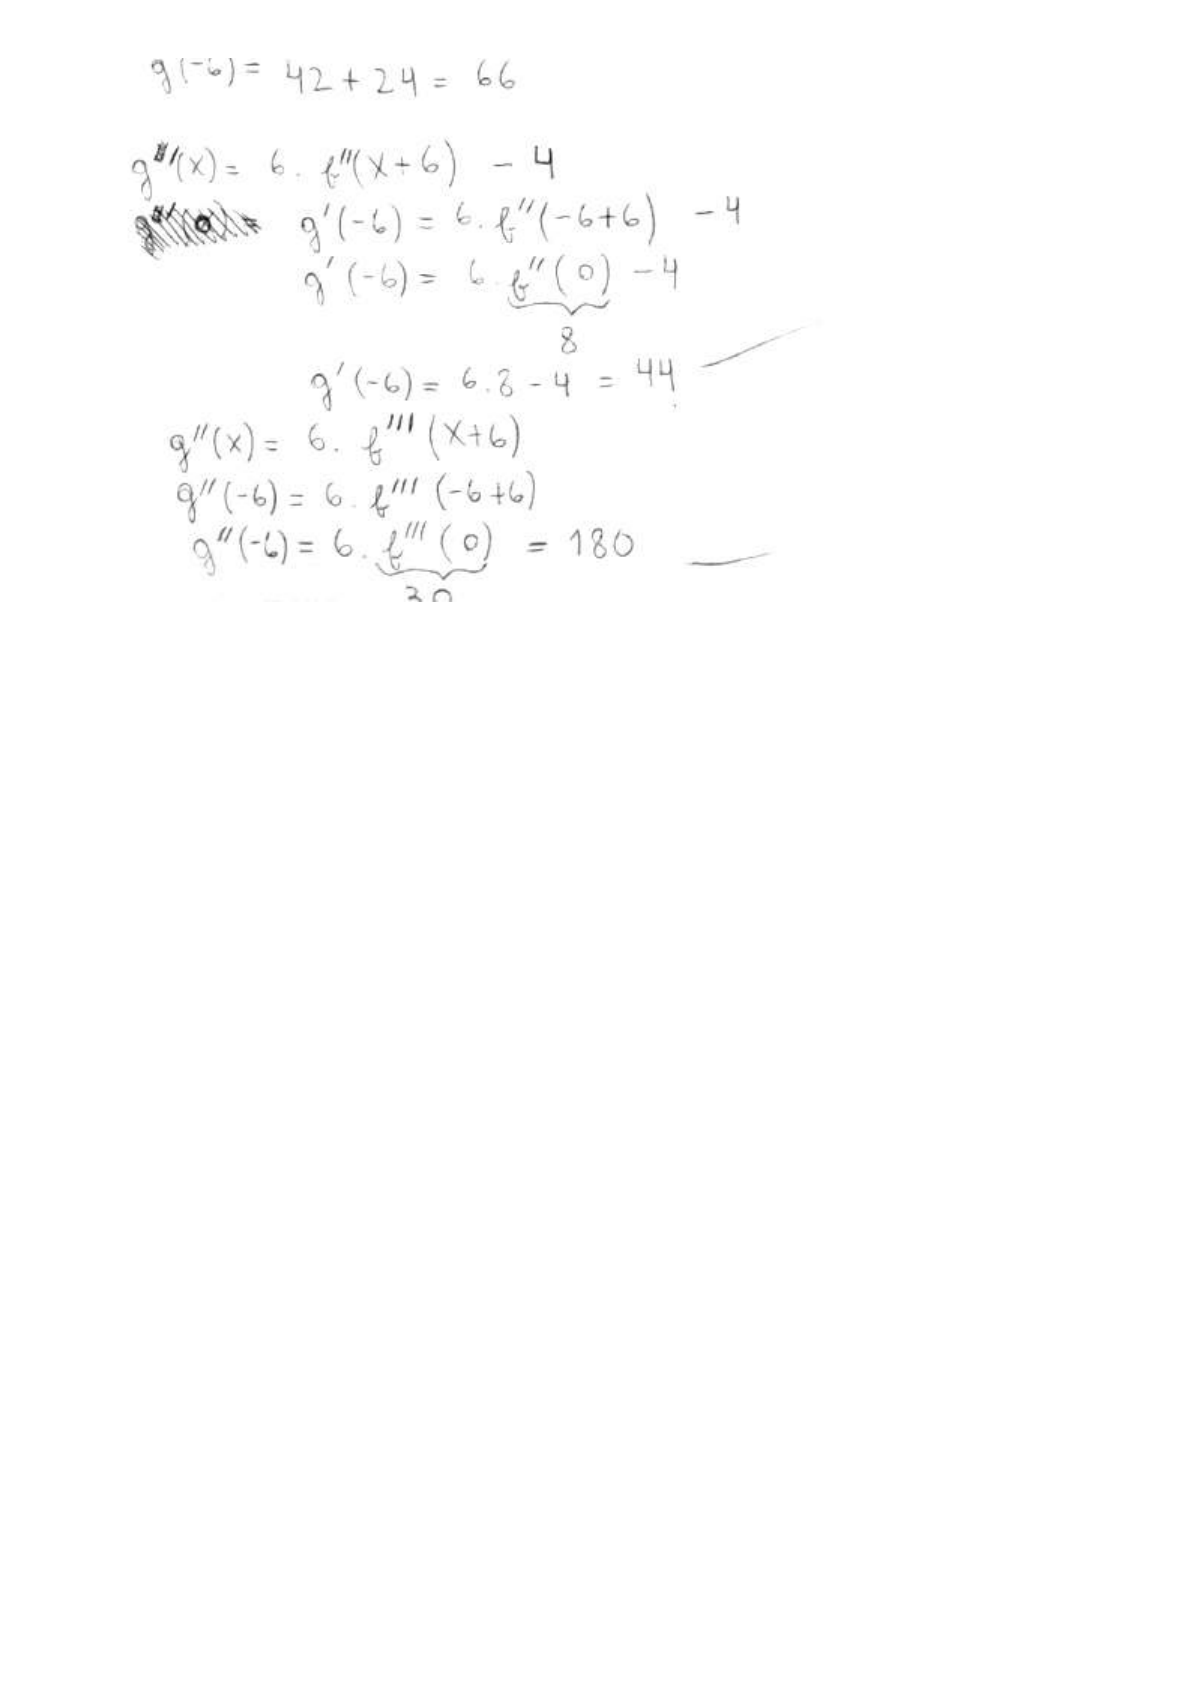 g(-6) = 42 + 24 = 66
g'(x) = 6 . f''(x+6) - 4
g'(-6) = 6 . f''(-6+6) - 4
g'(-6) = 6 . f''(0) - 4
8
g'(-6) = 6.8 - 4 = 44
g''(x) = 6 . f'''(x+6)
g''(-6) = 6 . f'''(-6+6)
g''(-6) = 6 . f'''(0) = 180
30